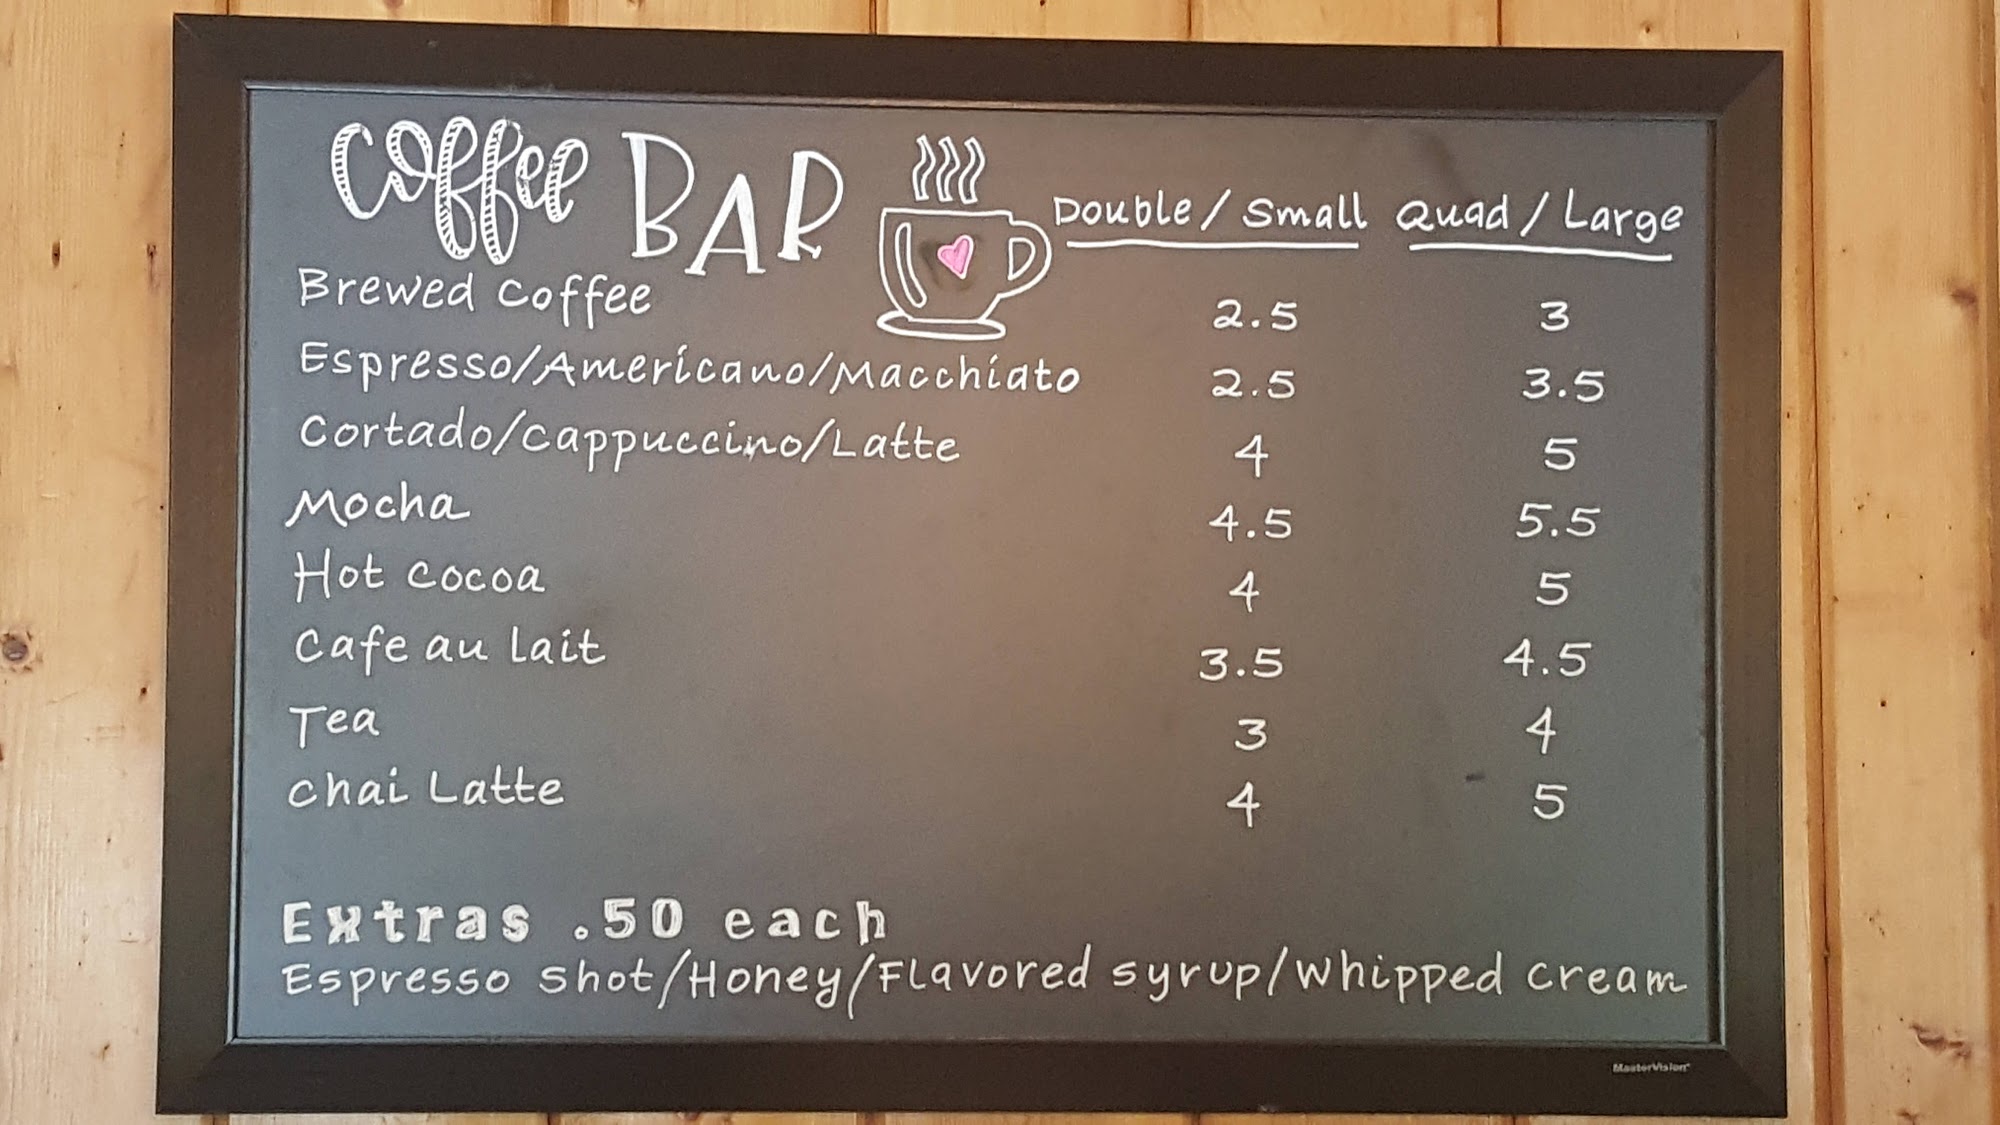 Coffee BAR
Double / Small Quad / Large
Brewed Coffee 2.5 3
Espresso/Americano/Macchiato 2.5 3.5
Cortado/Cappuccino/Latte 4 5
Mocha 4.5 5.5
Hot Cocoa 4 5
Cafe au lait 3.5 4.5
Tea 3 4
Chai Latte 4 5
Extras .50 each
Espresso Shot/Honey/Flavored Syrup/Whipped Cream
MasterVision